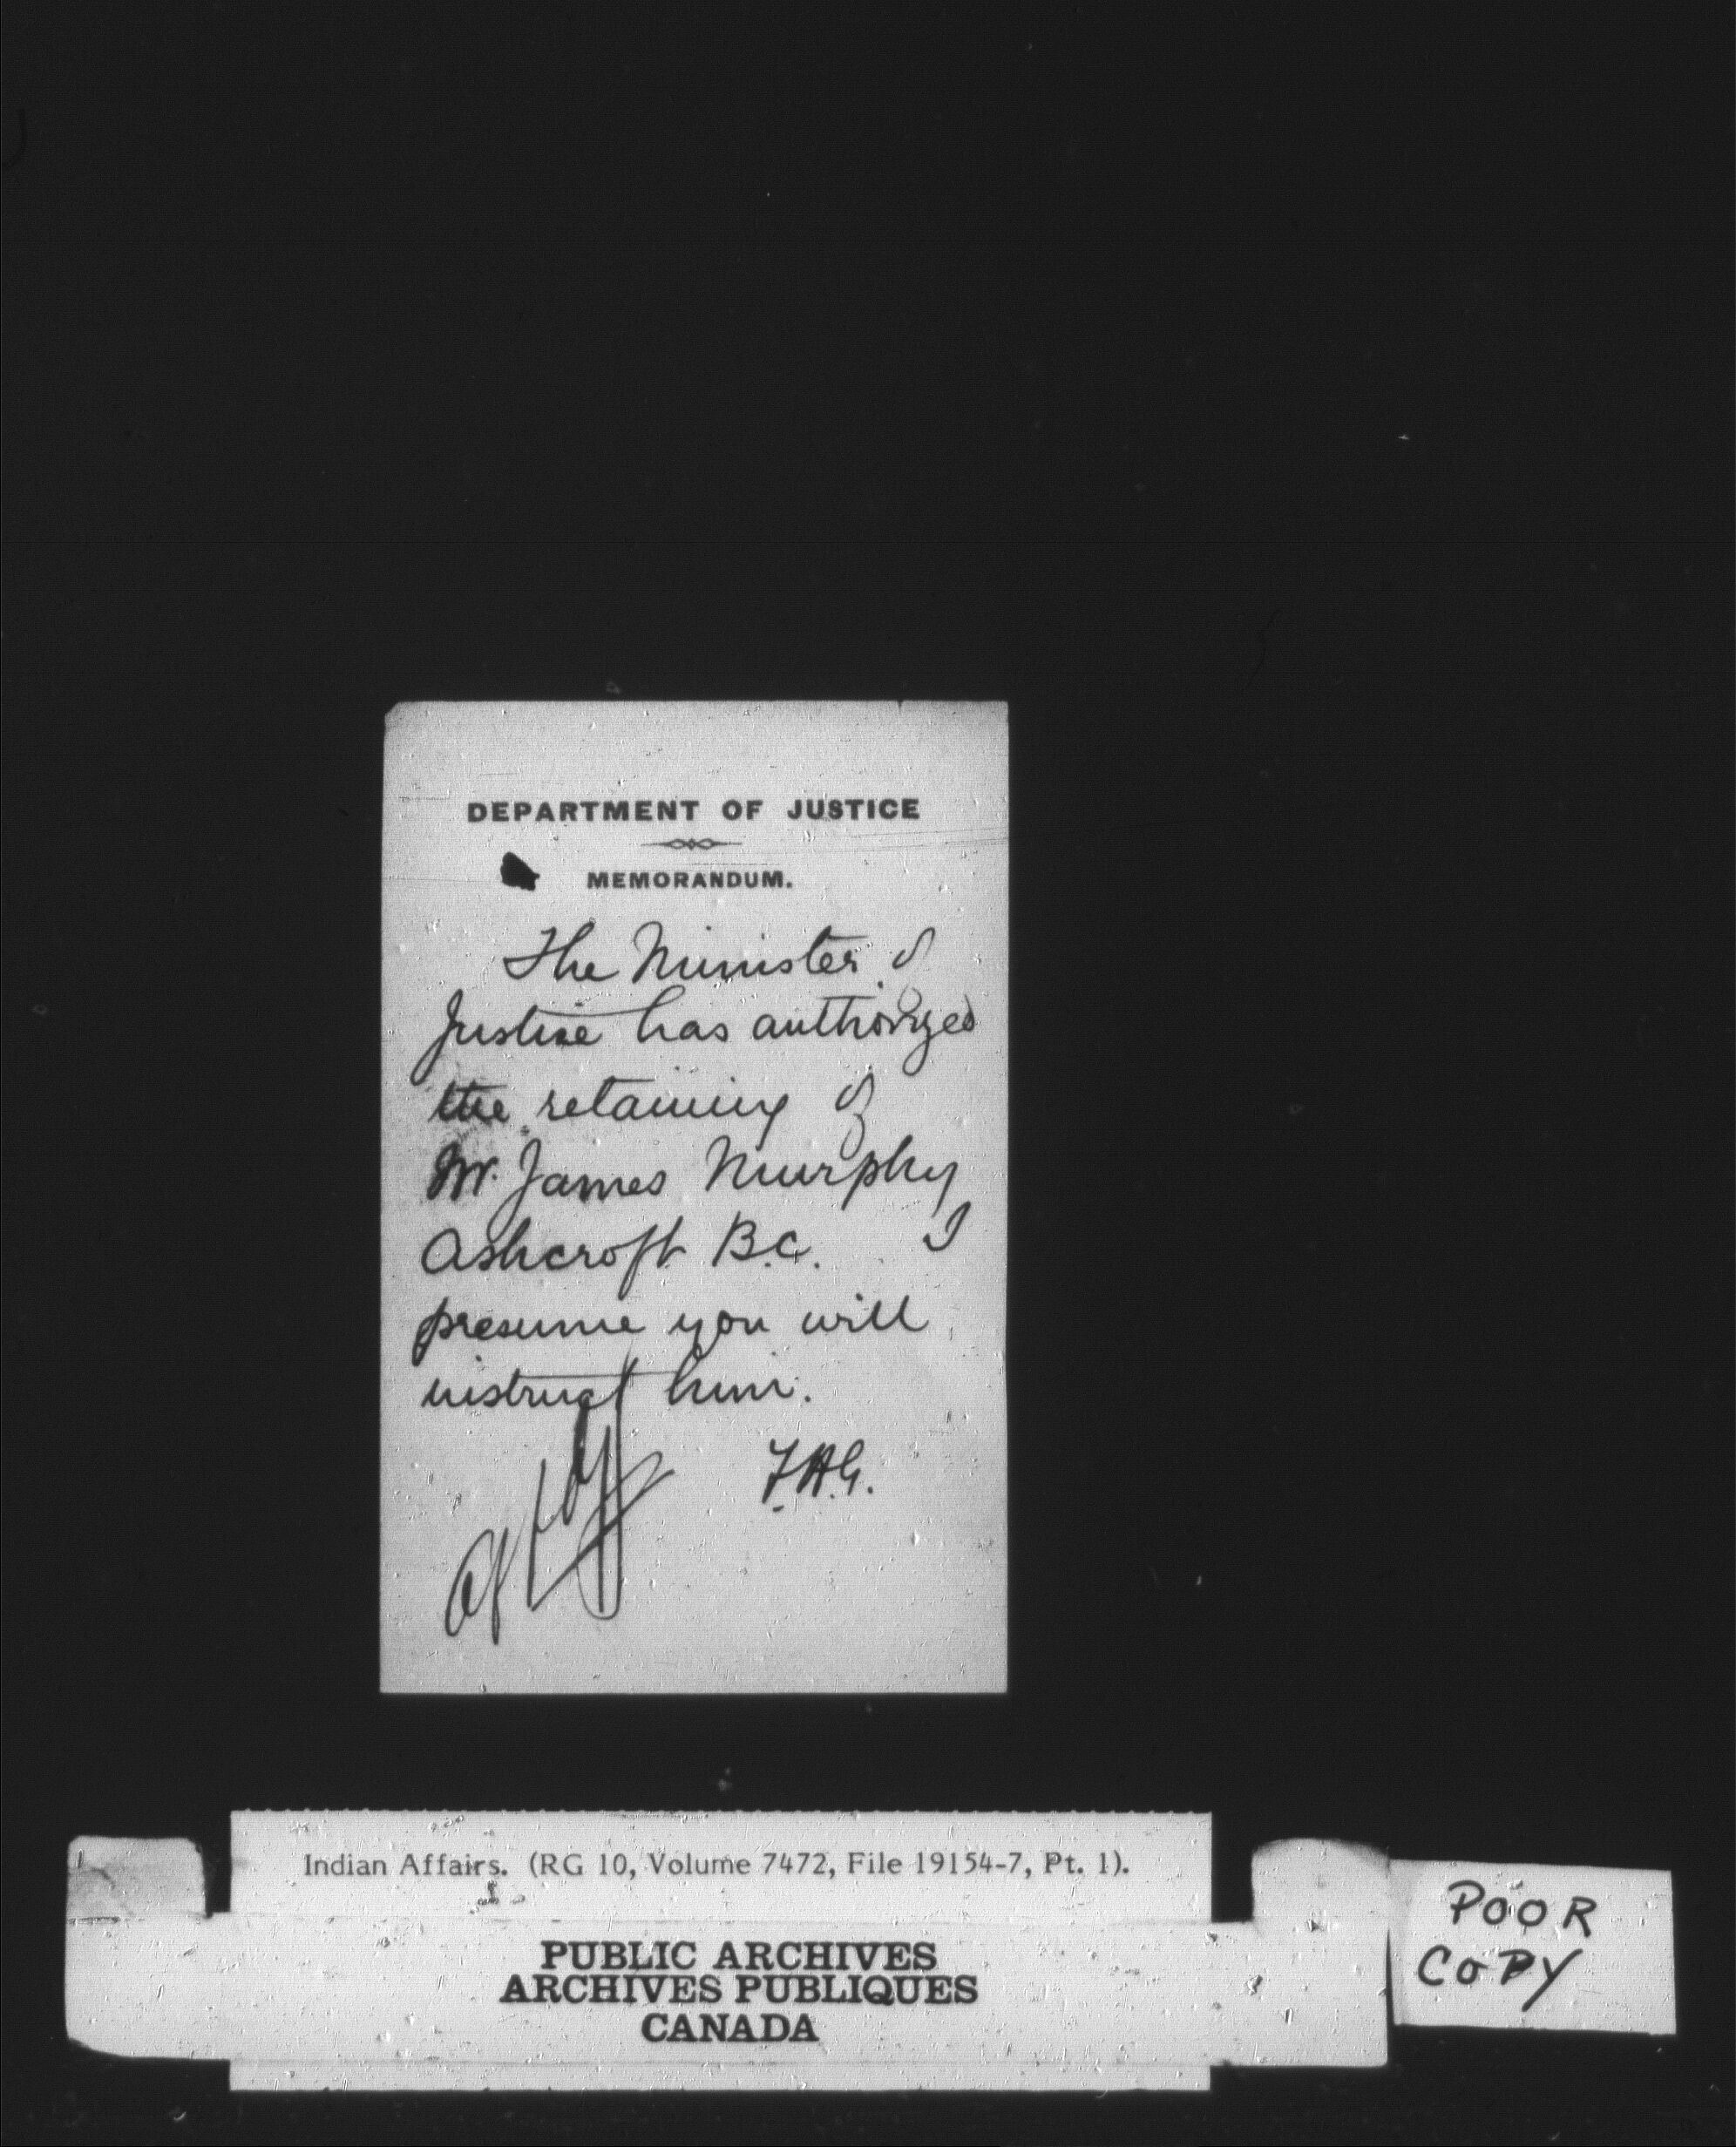 DEPARTMENT OF JUSTICE
MEMORANDUM.
The Minister of
Justice has authorized
the retaining of
Mr. James Murphy
Ashcroft B.C. I
presume you will
instruct him.
F.A.G.
Indian Affairs. (RG 10, Volume 7472, File 19154-7, Pt. 1).
PUBLIC ARCHIVES
ARCHIVES PUBLIQUES
CANADA
POOR
COPY